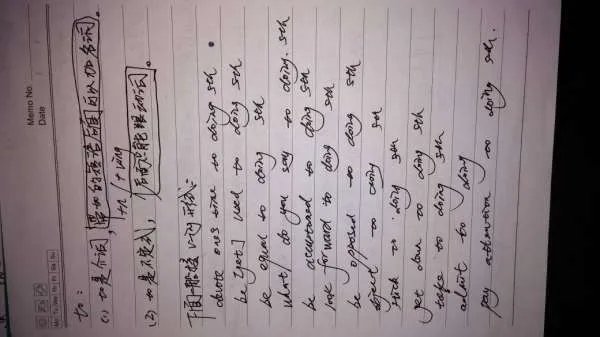 Memo No.
Date
Mo Tu We Th Fr Sa Su
to:
(1) to是介词, 后面可以加名词。
sth / + Ving
(2) to是不定式, 后面只能跟动词。
下面 接 Ving 形式:
devote ones time to doing sth
be [get] used to doing sth
be equal to doing sth
what do you say to doing. sth
be accustomed to doing sth
look forward to doing sth
be opposed to doing sth
object to doing sth
stick to doing sth
get down to doing sth
take to doing sth
admit to doing
pay attention to doing sth.